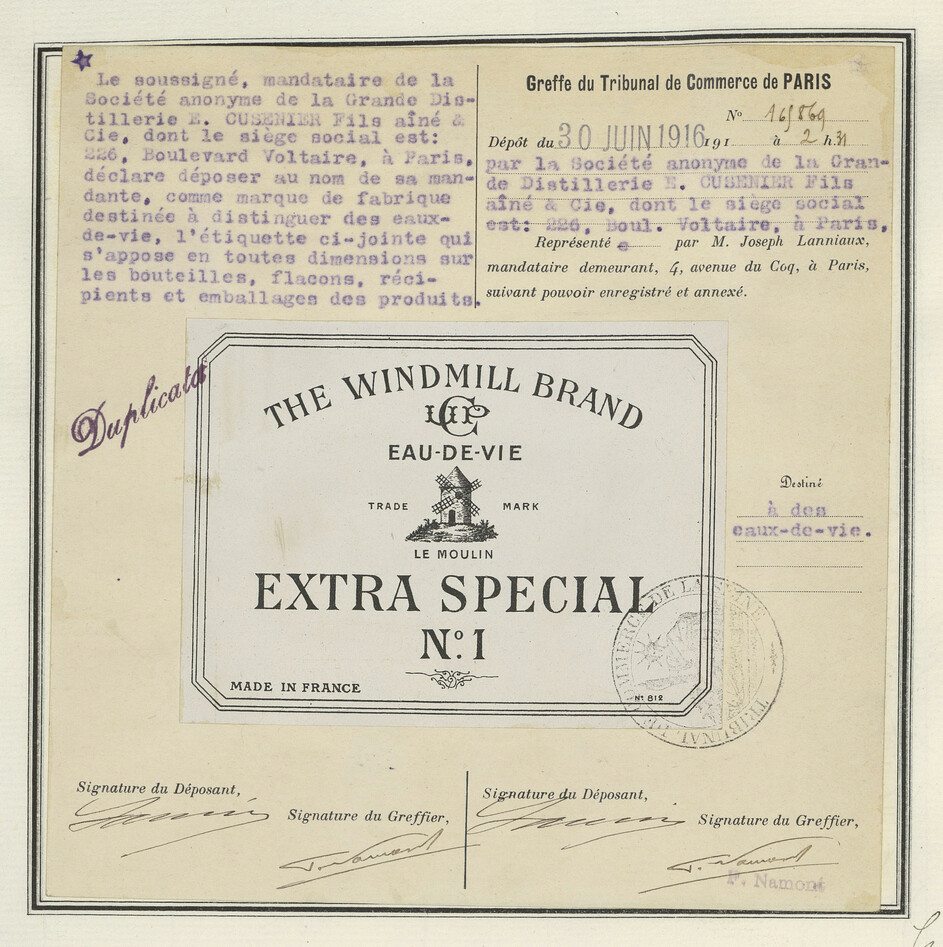 Le soussigné, mandataire de la
Société anonyme de la Grande Dis-
tillerie E. CUSENIER Fils aîné &
Cie, dont le siège social est:
226, Boulevard Voltaire, à Paris,
déclare déposer au nom de sa man-
dante, comme marque de fabrique
destinée à distinguer des eaux-
de-vie, l'étiquette ci-jointe qui
s'appose en toutes dimensions sur
les bouteilles, flacons, réci-
pients et emballages des produits.
Greffe du Tribunal de Commerce de PARIS
No 165869
Dépôt du 30 JUIN 1916 191 à 2 h. 31
par la Société anonyme de la Gran-
de Distillerie E. CUSENIER Fils
aîné & Cie, dont le siège social
est: 226, Boul. Voltaire, à Paris,
Représenté e par M. Joseph Lanniaux,
mandataire demeurant, 4, avenue du Coq, à Paris,
suivant pouvoir enregistré et annexé.
Duplicata
THE WINDMILL BRAND
EAU-DE-VIE
TRADE MARK
LE MOULIN
EXTRA SPECIAL
No. 1
MADE IN FRANCE
No 812
Destiné
à des
eaux-de-vie.
TRIBUNAL DE COMMERCE DE LA SEINE
Signature du Déposant,
Signature du Greffier,
Signature du Déposant,
Signature du Greffier,
F. Namont